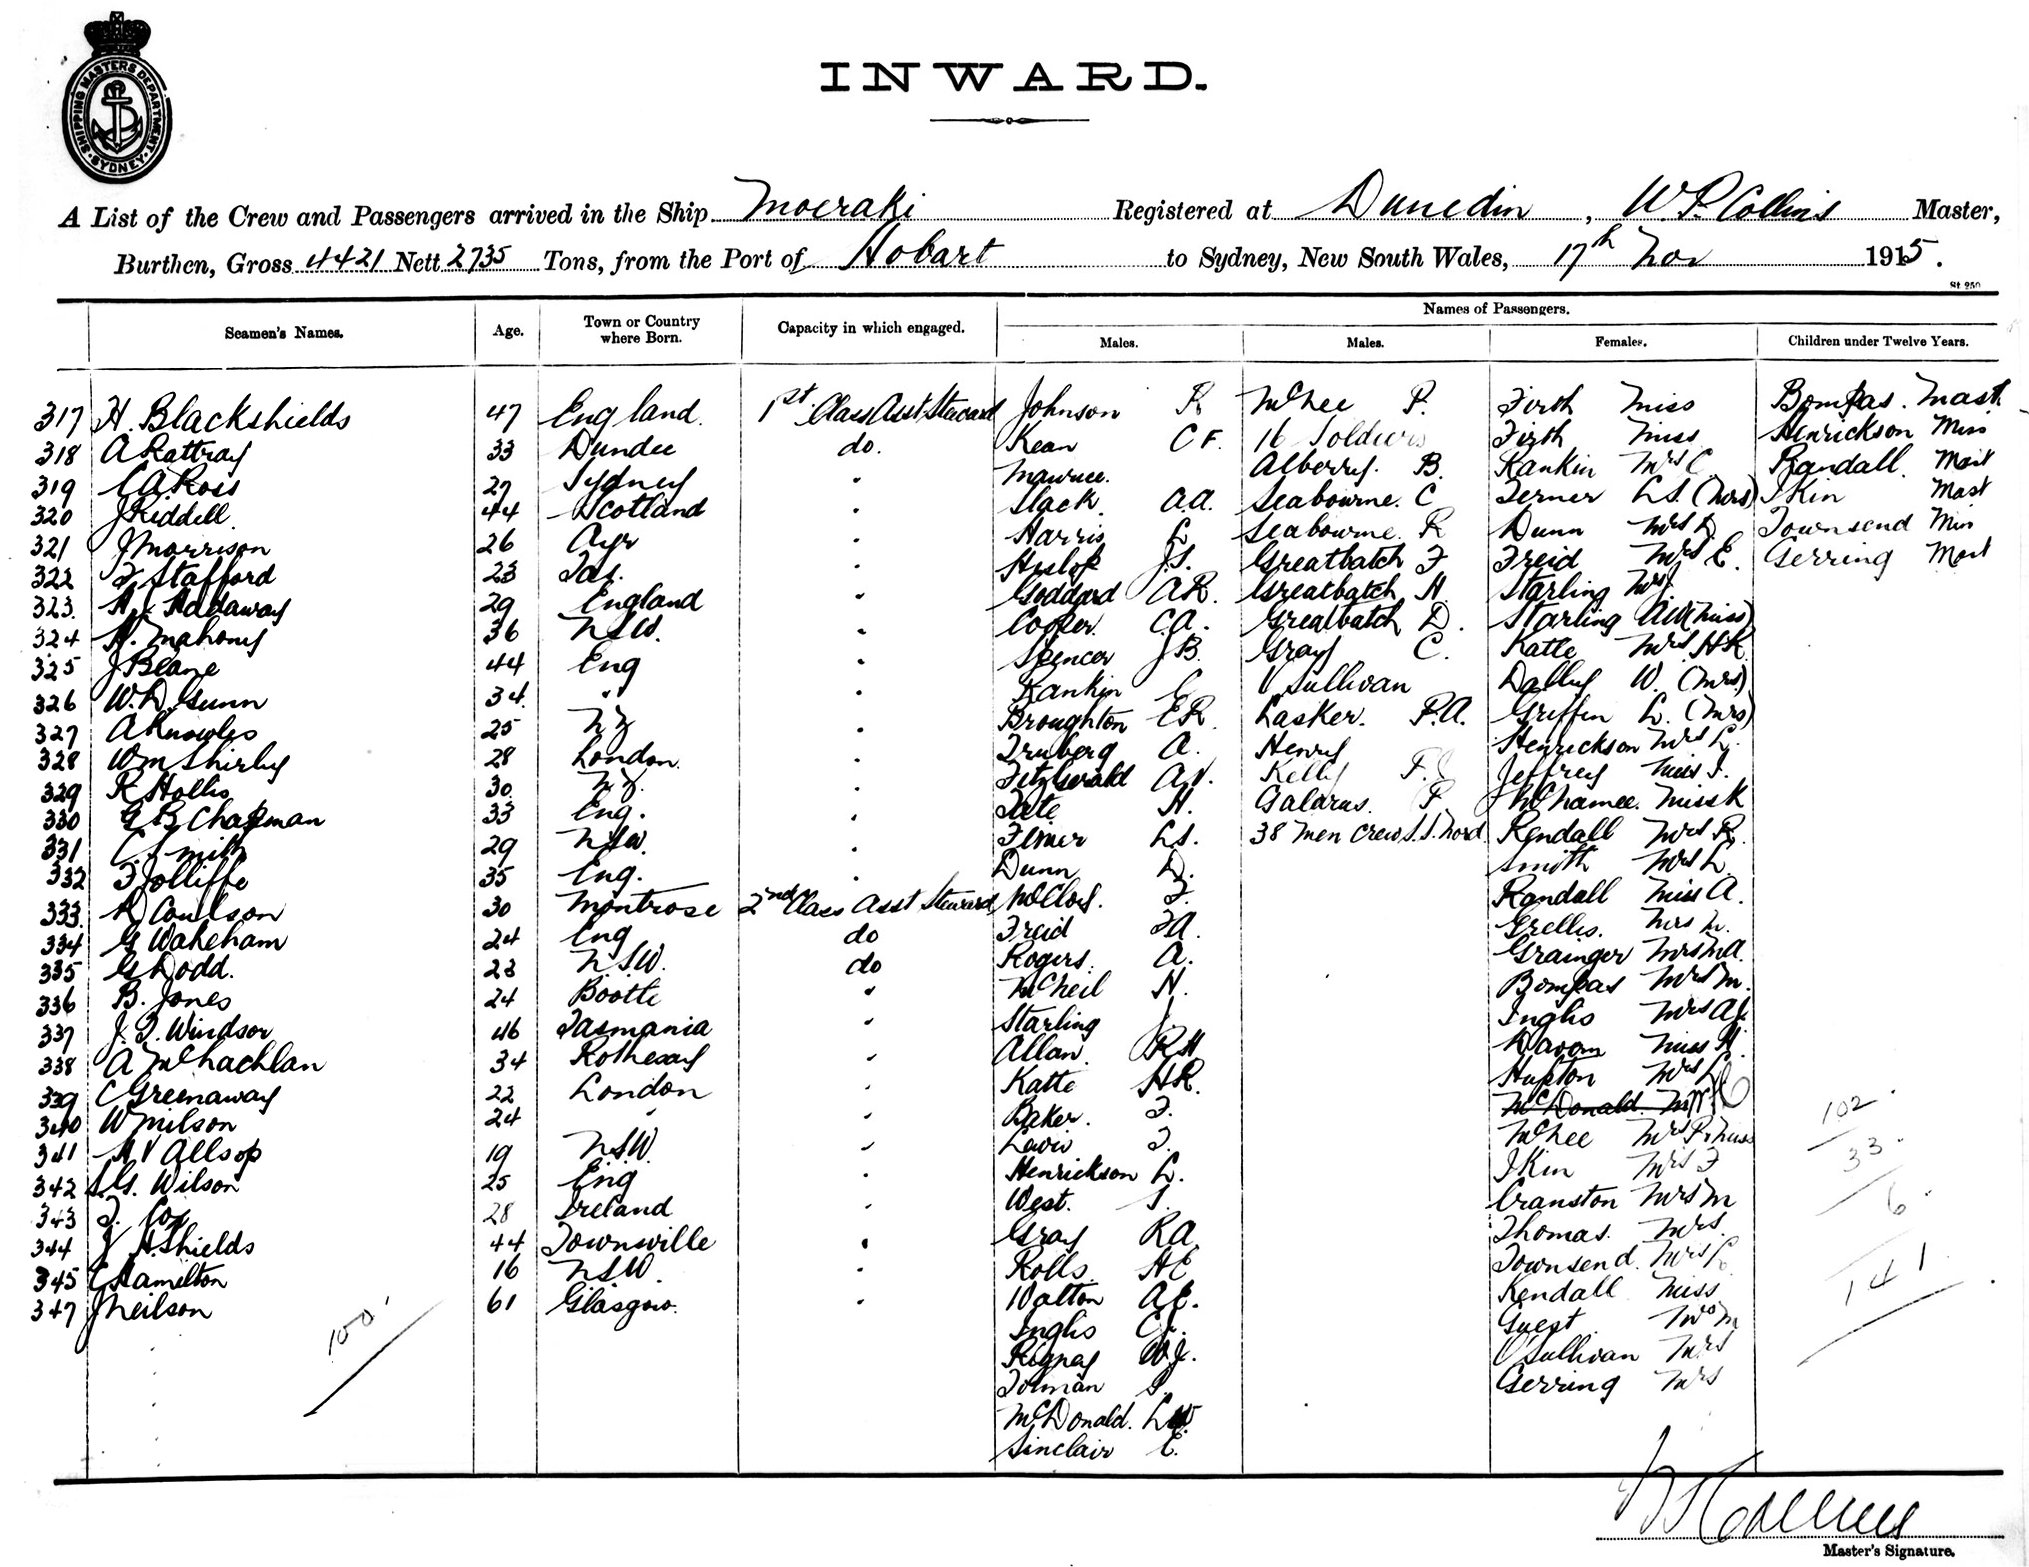 SHIPPING MASTERS DEPARTMENT
SYDNEY
INWARD.
A List of the Crew and Passengers arrived in the Ship Moeraki Registered at Dunedin, W. P. Collins Master,
Burthen, Gross 4421 Nett 2735 Tons, from the Port of Hobart to Sydney, New South Wales, 17th Nov 1915.
St 250
Seamen's Names. Age. Town or Country where Born. Capacity in which engaged. Names of Passengers.
Males. Males. Females. Children under Twelve Years.
317 H. Blackshields 47 England. 1st Class Asst Steward
318 A Rattray 33 Dundee do.
319 C A Ross 27 Sydney "
320 J Riddell 44 Scotland "
321 J Morrison 26 Ayr "
322 F. Stafford 23 Tas. "
323. H. J. Hadaway 29 England "
324 H. Mahony 36 NSW. "
325 J Beane 44 Eng "
326 W. D. Gunn 34. " "
327 A Knowles 25 NZ "
328 Wm Shirley 28 London. "
329 R Hollis 30 NZ. "
330 G B Chapman 33 Eng. "
331 C Smith 29 NSW. "
332 F Jolliffe 35 Eng. "
333. D Coulson 30 Montrose 2nd Class Asst Steward
334 G Wakeham 24 Eng do
335 G Dodd. 23 NSW. do
336 B. Jones 24 Bootle "
337 J. T. Windsor 46 Tasmania "
338 A McLachlan 34 Rothesay "
339 C Greenaway 22 London "
340 W Milson 24 " "
341 A V Allsop 19 NSW. "
342 S. G. Wilson 25 Eng "
343 T. Cox 28 Ireland "
344 J H Shields 44 Townsville "
345 C Hamilton 16 NSW. "
347 J Neilson 61 Glasgow. "
100
Johnson R
Kean C F.
Maurice.
Slack. A.A.
Harris L
Heslop J.S.
Goddard A R.
Cooper. C.A.
Spencer J B.
Rankin C
Broughton E R.
Truberg A.
Fitzgerald A V.
Tate H.
Ferner L S.
Dunn D.
McCloy. F.
Freid F A.
Rogers. A.
McNeil H.
Starling J.
Allan. R H
Katte H R.
Baker. F.
Lewis F.
Henrickson L.
West. S.
Gray R A
Rolls H E
Walton A E.
Inglis C J.
Rignay W J.
Tolman S.
McDonald. L W
Sinclair E.
McGhee P.
16 Soldiers
Alberry. B.
Seabourne. C
Seabourne. R
Greatbatch F
Greatbatch H.
Greatbatch D.
Gray C.
O'Sullivan
Lasker. P.A.
Henry
Kelly F.
Galarus. P.
38 Men Crew S.S. Nord
Firth Miss
Firth Miss
Rankin Mrs C
Ferner L S. (Mrs)
Dunn Mrs D.
Freid Mrs E.
Starling Mrs J
Starling A W (Miss)
Katte Mrs H R.
Dalley W. (Mrs)
Griffin L. (Mrs)
Henrickson Mrs L.
Jeffrey Miss I.
McNamee. Miss K
Kendall Mrs R.
Smith Mrs L.
Randall Miss A.
Grellis. Mrs M.
Grainger Mrs M A.
Bompas Mrs M.
Inglis Mrs A J.
Davom Miss H.
Hupton Mrs L
McDonald. Mrs
McGhee Mrs P & Miss
Ikin Mrs F
Cranston Mrs M
Thomas. Mrs.
Townsend. Mrs L
Kendall Miss
Guest Mrs M
O'Sullivan Mrs
Gerring Mrs
Bompas. Mast.
Henrickson Miss
Randall. Mast
Ikin Mast
Townsend Miss
Gerring Mast
102
33
6
141
W P Collins
Master's Signature.